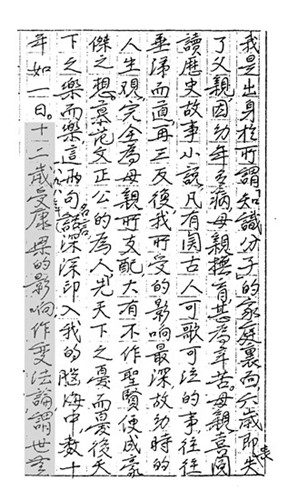 我是出身於所謂「知識分子」的家庭裏面，六歲即失
了父親，因幼年多病，母親撫育甚為辛苦。母親喜閱
讀歷史故事小說，凡有關古人可歌可泣的事，往往
垂涕而道，再三反復，我所受的影响最深，故幼時的
人生觀，完全為母親所支配，大有不作聖賢，便成豪
傑之想。宗范文正公的為人「先天下之憂而憂，後天
下之樂而樂」這兩句名言，深深印入我的腦海中，數十
年如一日。十二歲受康梁的影响，作變法論，謂世